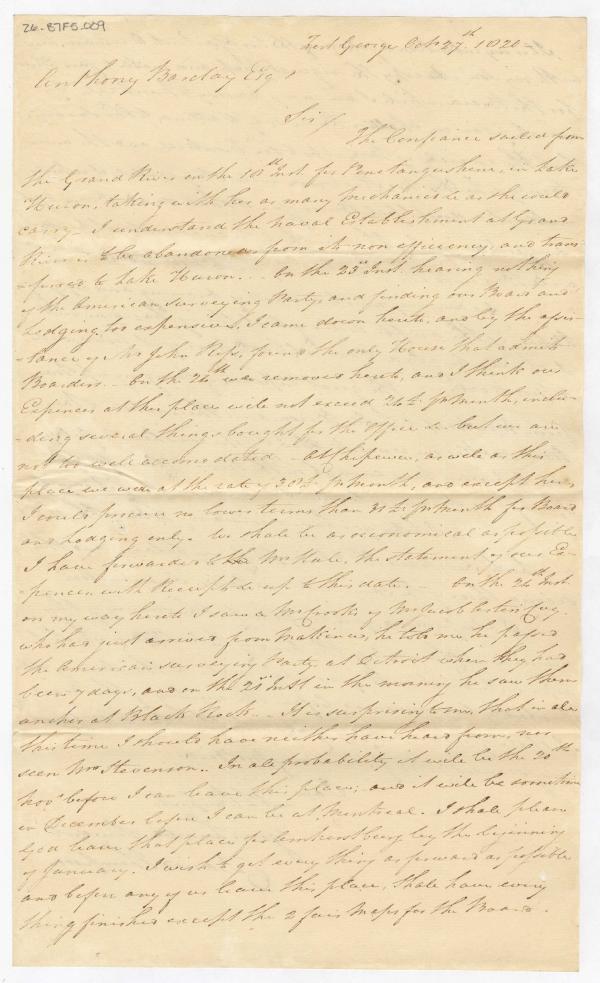 26-B7F5-009
Fort George Octr 27th 1820
Anthony Barclay Esqr
Sir/
The Confiance sailed from
the Grand River on the 10th Inst for Penetangushene, in Lake
Huron, taking with her as many Mechanics &c as she could
carry. I understand the Naval Establishment at Grand
River is to be abandoned from its non efficiency, and trans
-ferred to Lake Huron. On the 23d Inst. hearing nothing
of the American Surveying Party, and finding our Board and
Lodging, too expensive, I came down here to, and by the assis-
-tance of Mr John found the only House that admits
Boarders. On the 26th we removed hereto, and I think our
Expences at this place will not exceed pr Month, inclu-
-ding several things bought for the Office &c but we are
not too well accomodated. At Chipewa, as well as this
place we were at the rate of pr Month, and except here,
I could procure no lower terms than pr Month for Board
and Lodging only. We shall be as economical as possible
I have forwarded to Mr Hale, the statement of our Ex-
-pences with Receipts &c up to this date. On the 24th Inst
on my way hereto I saw a Mr Crooks of
who had just arrived from Mackinac, he told me he passed
the American surveying Party at Detroit where they had
been 7 days, and on the Inst in the morning he saw them
anchor at Black Rock. It is surprising to me, that in all
this time I should have neither have heard from, nor
seen Mr Stevenson. In all probability it will be the 20th
Novr before I can leave this place; and it will be sometime
in December before I can be at Montreal. I shall please
God leave that place for Amherstburg by the beginning
of January. I wish to get every thing as forward as possible
and before any of us leave this place, shall have every
thing finished except the 2 fair Maps for the Board.